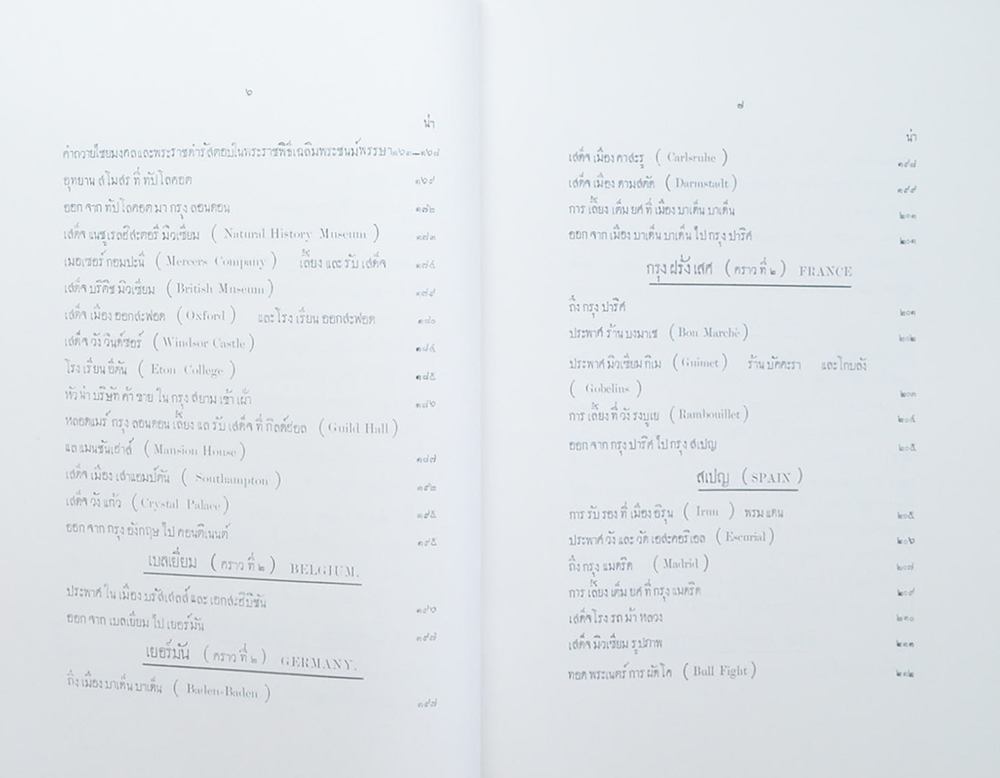 ๖
น่า
คำถวายไชยมงคลและพระราชดำรัสตอบในพระราชพิธีเฉลิมพระชนม์พรรษา ๑๖๓—๑๖๘
อุทยาน สโมสร ที่ ทัปโลคอต ๑๖๙
ออก จาก ทัปโลคอต มา กรุง ลอนดอน ๑๗๒
เสด็จ แนชูเรลฮิสตอรี่ มิวเซี่ยม ( Natural History Museum ) ๑๗๓
เมอเซอร์ กอมปะนี ( Mercers Company ) เลี้ยง และ รับ เสด็จ ๑๗๔
เสด็จ บริติช มิวเซี่ยม ( British Museum ) ๑๗๙
เสด็จ เมือง ออกสะฟอด ( Oxford ) และ โรง เรียน ออกสะฟอด ๑๘๐
เสด็จ วัง วินด์ซอร์ ( Windsor Castle ) ๑๘๔
โรง เรียน อีตัน ( Eton College ) ๑๘๕
หัว น่า บริษัท ค้า ขาย ใน กรุง สยาม เข้า เฝ้า ๑๘๖
หลอดแมร์ กรุง ลอนดอน เลี้ยง แล รับ เสด็จ ที่ กิลด์ฮอล ( Guild Hall )
แล แมนชันเฮาส์ ( Mansion House ) ๑๘๗
เสด็จ เมือง เสาแอมป์ตัน ( Southampton ) ๑๙๓
เสด็จ วัง แก้ว ( Crystal Palace ) ๑๙๕
ออก จาก กรุง อังกฤษ ไป คอนติเนนต์ ๑๙๕
เบลเยี่ยม ( คราว ที่ ๒ ) BELGIUM.
ประพาศ ใน เมือง บรัสเสลส์ และ เอกสะฮิบิชัน ๑๙๖
ออก จาก เบลเยี่ยม ไป เยอร์มัน ๑๙๗
เยอร์มัน ( คราว ที่ ๒ ) GERMANY.
ถึง เมือง บาเด็น บาเด็น ( Baden-Baden ) ๑๙๗
๗
น่า
เสด็จ เมือง คาลสะรู ( Carlsruhe ) ๑๙๘
เสด็จ เมือง ดามสตัด ( Darmstadt ) ๑๙๙
การ เลี้ยง เต็ม ยศ ที่ เมือง บาเด็น บาเด็น ๒๐๑
ออก จาก เมือง บาเด็น บาเด็น ไป กรุง ปาริศ ๒๐๑
กรุง ฝรั่ง เสศ ( คราว ที่ ๒ ) FRANCE
ถึง กรุง ปาริศ ๒๐๑
ประพาศ ร้าน บงมาเช ( Bon Marchè ) ๒๐๒
ประพาศ มิวเซี่ยม กิเม ( Guimet ) ร้าน บัคคะรา และ โกบลัง
( Gobelins ) ๒๐๓
การ เลี้ยง ที่ วัง รงบูเย ( Rambouillet ) ๒๐๔
ออก จาก กรุง ปาริศ ไป กรุง สเปญ ๒๐๕
สเปญ ( SPAIN )
การ รับ รอง ที่ เมือง อิรุน ( Irun ) พรม แดน ๒๐๕
ประพาศ วัง และ วัด เอสะคอริเอล ( Escurial ) ๒๐๖
ถึง กรุง แมดริด ( Madrid ) ๒๐๗
การ เลี้ยง เต็ม ยศ ที่ กรุง แมดริด ๒๐๙
เสด็จ โรง รถ ม้า หลวง ๒๑๐
เสด็จ มิวเซี่ยม รูปภาพ ๒๑๑
ทอด พระเนตร์ การ ผัด โค ( Bull Fight ) ๒๑๒